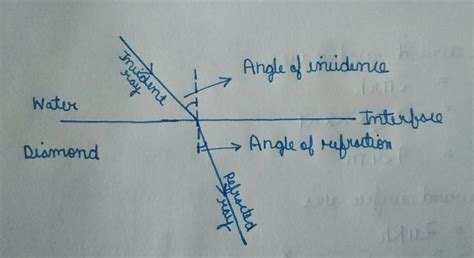 Angle of incidence
Incident ray
Water
Interface
Diamond
Angle of refraction
Refracted ray